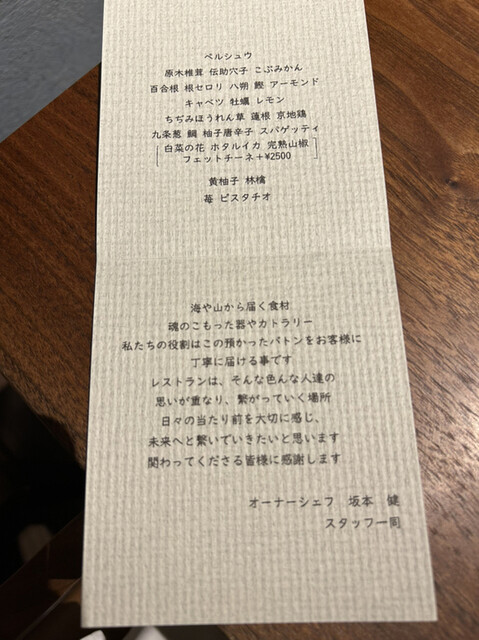 ペルシュウ
原木椎茸 伝助穴子 こぶみかん
百合根 根セロリ 八朔 鰹 アーモンド
キャベツ 牡蠣 レモン
ちぢみほうれん草 蓮根 京地鶏
九条葱 鯛 柚子唐辛子 スパゲッティ
白菜の花 ホタルイカ 完熟山椒
フェットチーネ+¥2500
黄柚子 林檎
苺 ピスタチオ
海や山から届く食材
魂のこもった器やカトラリー
私たちの役割はこの預かったバトンをお客様に
丁寧に届ける事です
レストランは、そんな色んな人達の
思いが重なり、繋がっていく場所
日々の当たり前を大切に感じ、
未来へと繋いでいきたいと思います
関わってくださる皆様に感謝します
オーナーシェフ 坂本 健
スタッフ一同